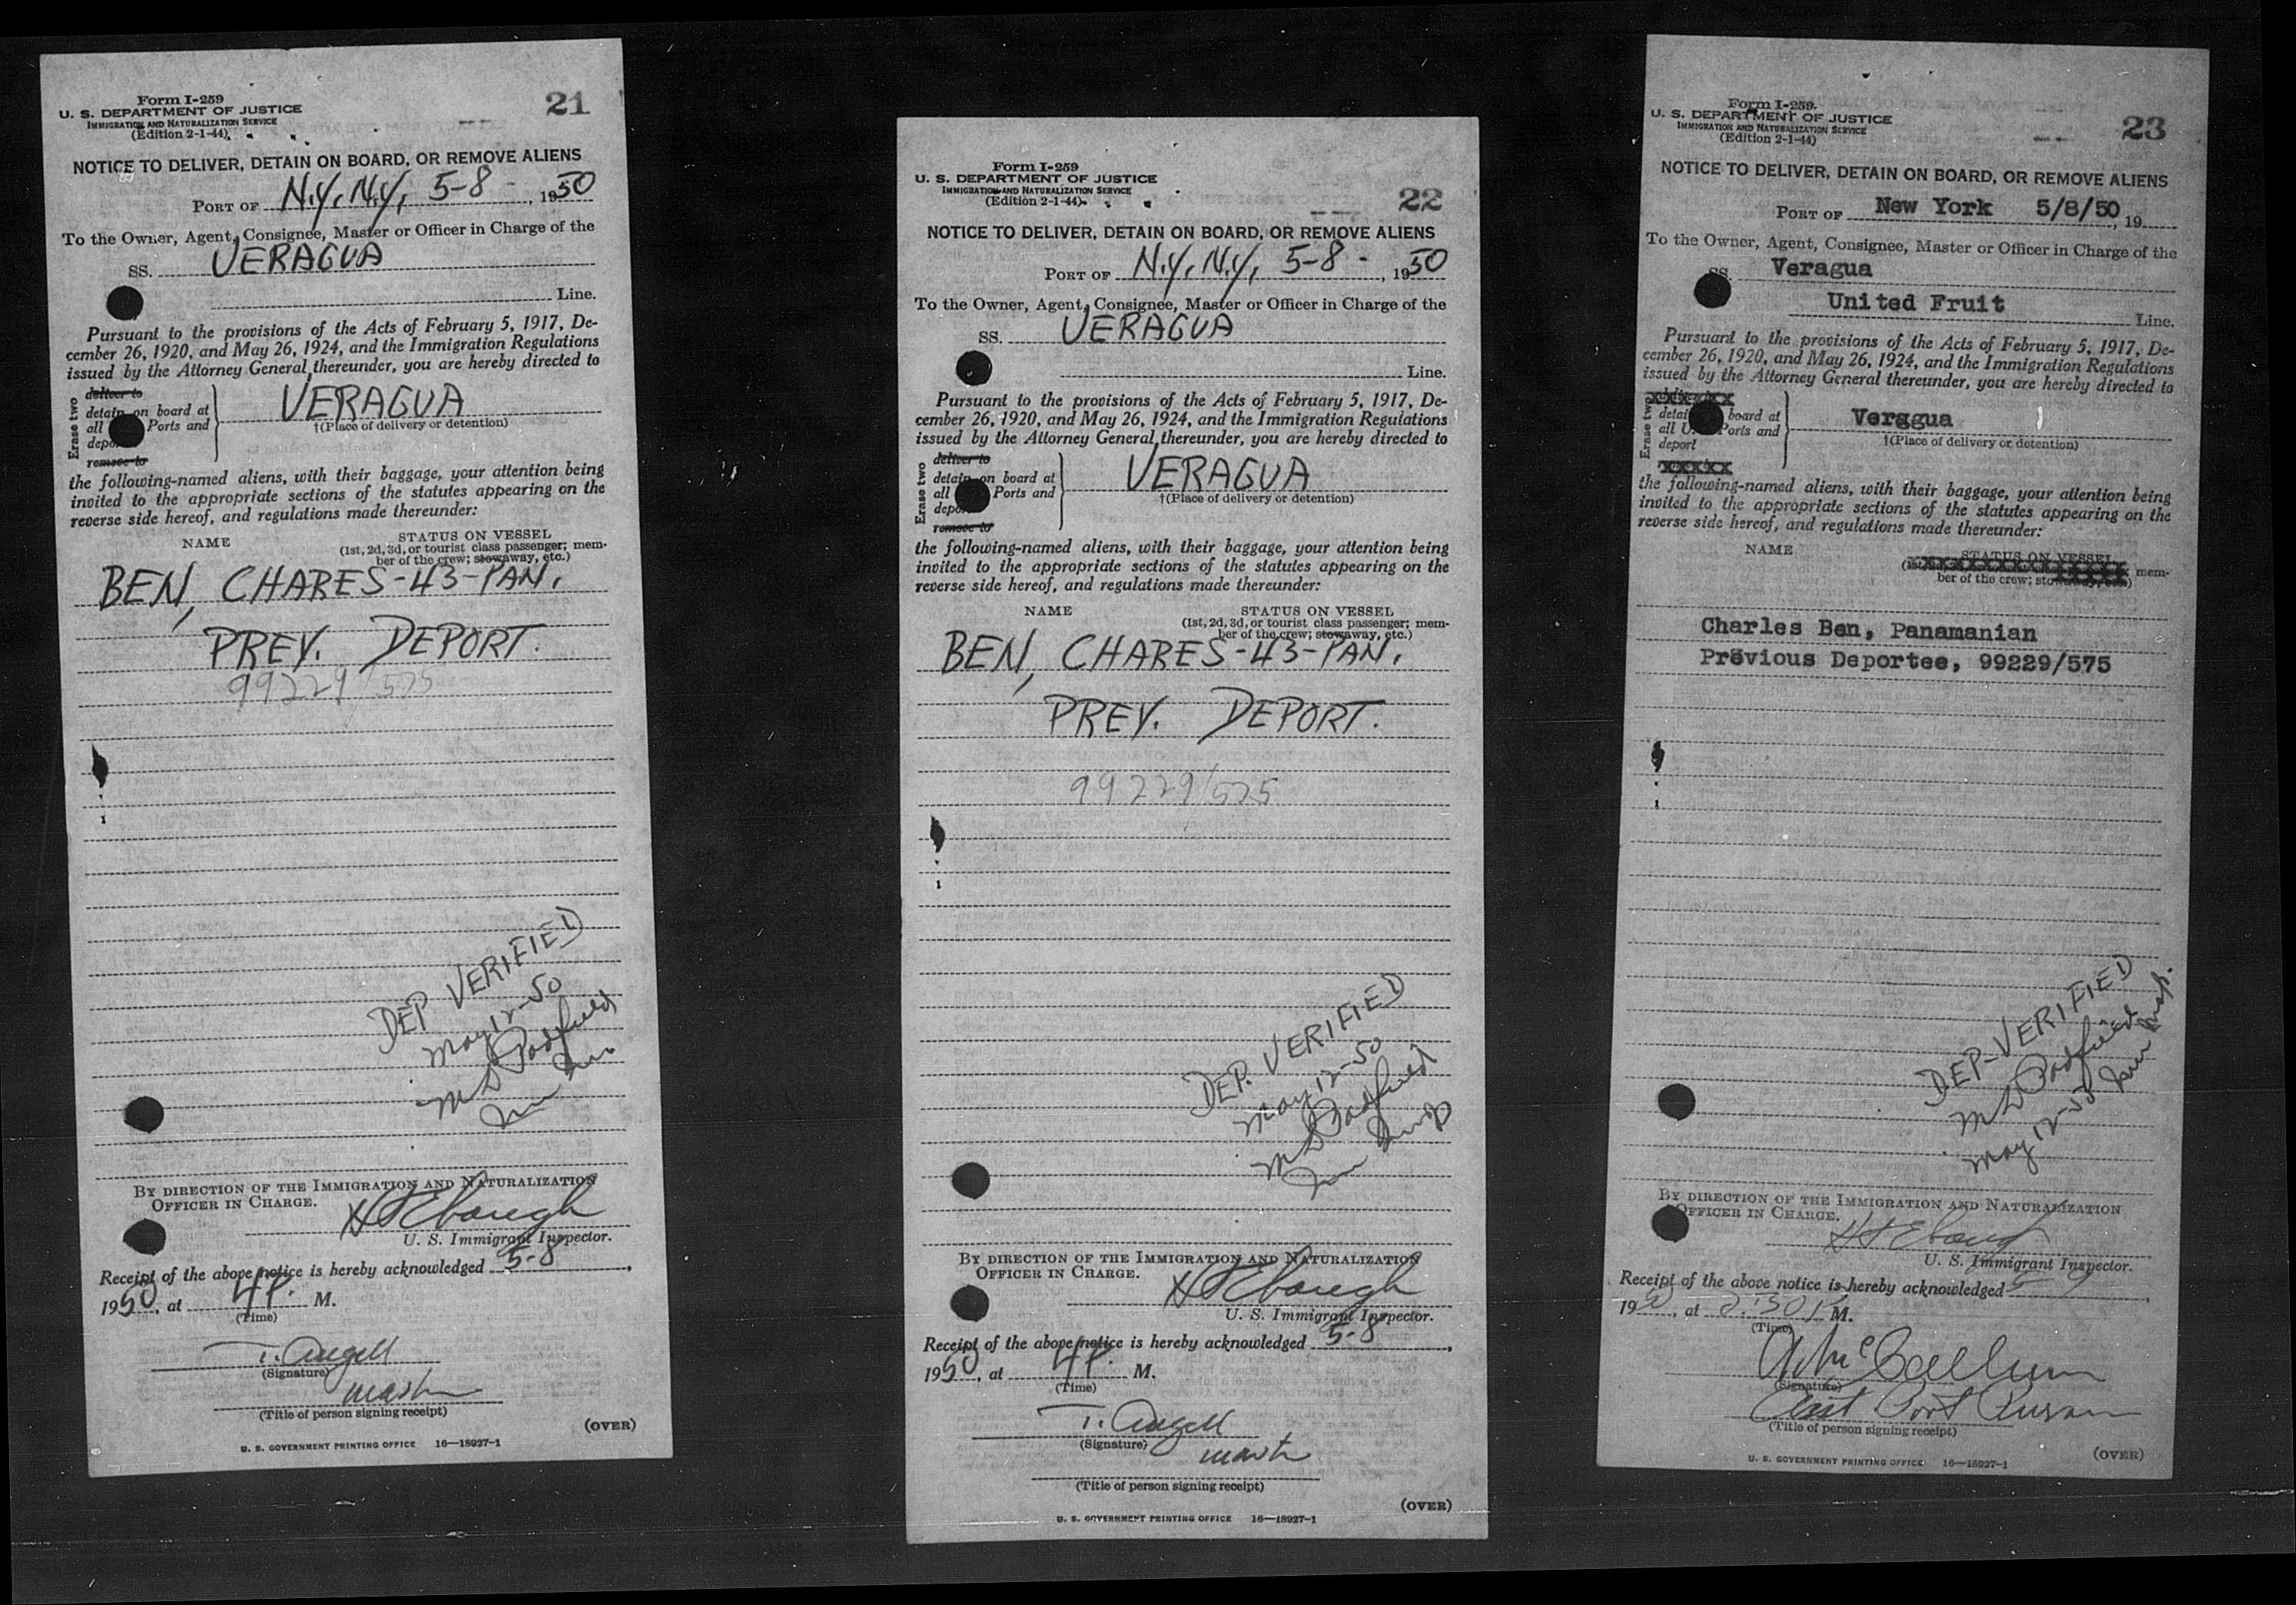 Form I-259
21
U. S. DEPARTMENT OF JUSTICE
IMMIGRATION AND NATURALIZATION SERVICE
(Edition 2-1-44)
NOTICE TO DELIVER, DETAIN ON BOARD, OR REMOVE ALIENS
PORT OF N.Y, N.Y, 5-8-, 1950
To the Owner, Agent, Consignee, Master or Officer in Charge of the
SS. VERAGUA
Line.
Pursuant to the provisions of the Acts of February 5, 1917, De-
cember 26, 1920, and May 26, 1924, and the Immigration Regulations
issued by the Attorney General thereunder, you are hereby directed to
Erase two
deliver to
detain on board at
all Ports and
depo
remove to
VERAGUA
†(Place of delivery or detention)
the following-named aliens, with their baggage, your attention being
invited to the appropriate sections of the statutes appearing on the
reverse side hereof, and regulations made thereunder:
NAME STATUS ON VESSEL
(1st, 2d, 3d, or tourist class passenger; mem-
ber of the crew; stowaway, etc.)
BEN, CHARES-43-PAN.
PREV. DEPORT.
99229/575
DEP VERIFIED
May 12-50
M D Padfield
Imm
BY DIRECTION OF THE IMMIGRATION AND NATURALIZATION
OFFICER IN CHARGE.
H S Ebaugh
U. S. Immigrant Inspector.
Receipt of the above notice is hereby acknowledged 5-8,
1950, at 4 P. M.
(Time)
T. Angell
(Signature)
master
(Title of person signing receipt)
(OVER)
U. S. GOVERNMENT PRINTING OFFICE 16—18027-1
Form I-259
22
U. S. DEPARTMENT OF JUSTICE
IMMIGRATION AND NATURALIZATION SERVICE
(Edition 2-1-44)
NOTICE TO DELIVER, DETAIN ON BOARD, OR REMOVE ALIENS
PORT OF N.Y, N.Y, 5-8-, 1950
To the Owner, Agent, Consignee, Master or Officer in Charge of the
SS. VERAGUA
Line.
Pursuant to the provisions of the Acts of February 5, 1917, De-
cember 26, 1920, and May 26, 1924, and the Immigration Regulations
issued by the Attorney General thereunder, you are hereby directed to
Erase two
deliver to
detain on board at
all Ports and
depor
remove to
VERAGUA
†(Place of delivery or detention)
the following-named aliens, with their baggage, your attention being
invited to the appropriate sections of the statutes appearing on the
reverse side hereof, and regulations made thereunder:
NAME STATUS ON VESSEL
(1st, 2d, 3d, or tourist class passenger; mem-
ber of the crew; stowaway, etc.)
BEN, CHARES-43-PAN.
PREV. DEPORT.
99229/575
DEP. VERIFIED
May 12-50
M D Padfield
Imm Insp
BY DIRECTION OF THE IMMIGRATION AND NATURALIZATION
OFFICER IN CHARGE.
H S Ebaugh
U. S. Immigrant Inspector.
Receipt of the above notice is hereby acknowledged 5-8,
1950, at 4 P. M.
(Time)
T. Angell
(Signature)
master
(Title of person signing receipt)
(OVER)
U. S. GOVERNMENT PRINTING OFFICE 16—18027-1
Form I-259.
23
U. S. DEPARTMENT OF JUSTICE
IMMIGRATION AND NATURALIZATION SERVICE
(Edition 2-1-44)
NOTICE TO DELIVER, DETAIN ON BOARD, OR REMOVE ALIENS
PORT OF New York 5/8/50, 19
To the Owner, Agent, Consignee, Master or Officer in Charge of the
SS. Veragua
United Fruit Line.
Pursuant to the provisions of the Acts of February 5, 1917, De-
cember 26, 1920, and May 26, 1924, and the Immigration Regulations
issued by the Attorney General thereunder, you are hereby directed to
Erase two
xxxxxxx
detai board at
all U. Ports and
deport
xxxxx
Verggua
†(Place of delivery or detention)
the following-named aliens, with their baggage, your attention being
invited to the appropriate sections of the statutes appearing on the
reverse side hereof, and regulations made thereunder:
NAME STATUS ON VESSEL
mem-
ber of the crew;
Charles Ben, Panamanian
Previous Deportee, 99229/575
DEP-VERIFIED
M D Padfield
May 12-50 Imm Insp.
BY DIRECTION OF THE IMMIGRATION AND NATURALIZATION
OFFICER IN CHARGE.
H S Ebaugh
U. S. Immigrant Inspector.
Receipt of the above notice is hereby acknowledged 5 9
1950, at 2:30 P M.
(Time)
A McCallum
(Signature)
Asst Port Purser
(Title of person signing receipt)
(OVER)
U. S. GOVERNMENT PRINTING OFFICE 16—18027-1